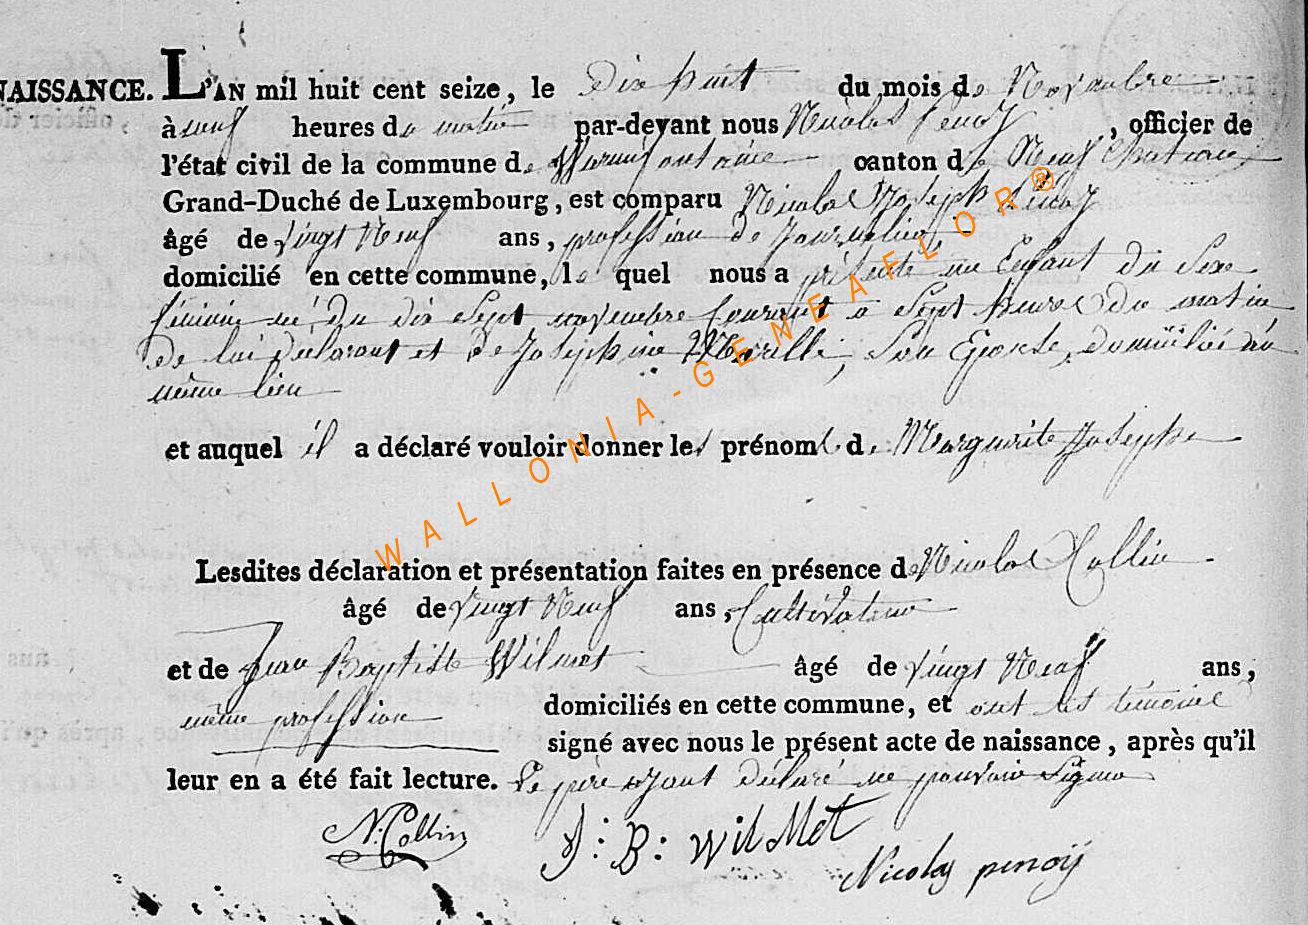 NAISSANCE. L'AN mil huit cent seize, le Dix huit du mois de Novembre
à neuf heures du matin par-devant nous Nicolas penoÿ, officier de
l'état civil de la commune de Warmifontaine canton de Neuf Chateau
Grand-Duché de Luxembourg, est comparu Nicolas Joseph
âgé de Vingt Neuf ans, profession de Journalier
domicilié en cette commune, le quel nous a présenté un Enfant du Sexe
féminin né du dix Sept novembre Courant a Sept heures Du matin
de lui declarant et de Josephine son Epouse, domiciliée au
même lieu
et auquel il a déclaré vouloir donner les prénoms de Marguerite Josephe
Lesdites déclaration et présentation faites en présence de Nicolas Collin
âgé de Vingt Neuf ans, Cultivateur
et de Jean Baptiste Wilmet âgé de Vingt Neuf ans,
même profession domiciliés en cette commune, et ont les témoins
signé avec nous le présent acte de naissance, après qu'il
leur en a été fait lecture. Le père ayant déclaré ne pouvoir Signer
N. Collin J: B: wilMet Nicolas penoÿ
WALLONIA-GENEAFLOR®